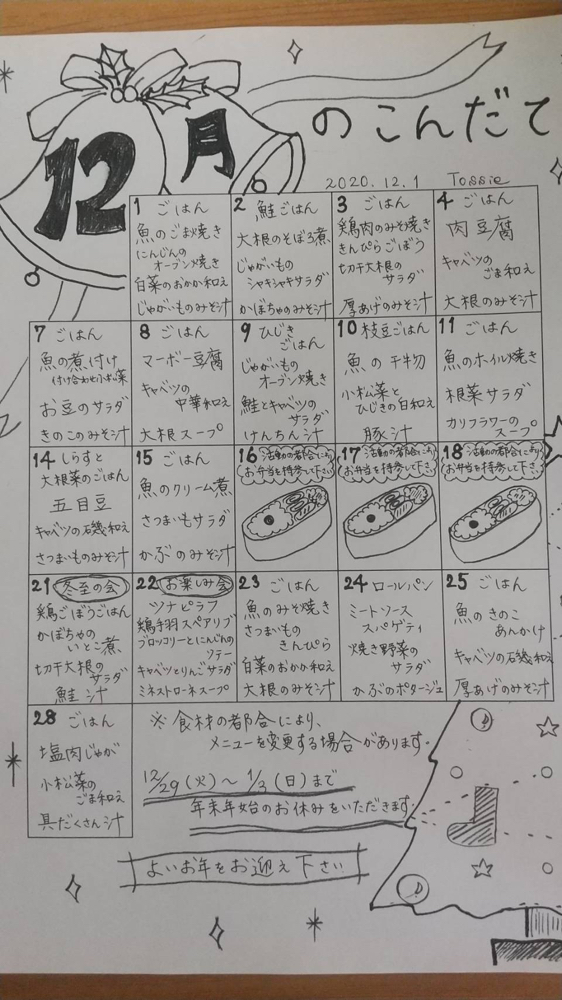 12月
のこんだて
2020.12.1 Tossie
1 ごはん
魚のごま焼き
にんじんの
オーブン焼き
白菜のおかか和え
じゃがいものみそ汁
2 鮭ごはん
大根のそぼろ煮
じゃがいもの
シャキシャキサラダ
かぼちゃのみそ汁
3 ごはん
鶏肉のみそ焼き
きんぴらごぼう
切干大根の
サラダ
厚あげのみそ汁
4 ごはん
肉豆腐
キャベツの
ごま和え
大根のみそ汁
7 ごはん
魚の煮付け
付け合わせ小松菜
お豆のサラダ
きのこのみそ汁
8 ごはん
マーボー豆腐
キャベツの
中華和え
大根スープ
9 ひじき
ごはん
じゃがいもの
オーブン焼き
鮭とキャベツの
サラダ
けんちん汁
10 枝豆ごはん
魚の干物
小松菜と
ひじきの白和え
豚汁
11 ごはん
魚のホイル焼き
根菜サラダ
カリフラワーの
スープ
14 しらすと
大根菜のごはん
五目豆
キャベツの磯和え
さつまいものみそ汁
15 ごはん
魚のクリーム煮
さつまいもサラダ
かぶのみそ汁
16 活動の都合により
お弁当を持参して下さい
17 活動の都合により
お弁当を持参して下さい
18 活動の都合により
お弁当を持参して下さい
21 冬至の会
鶏ごぼうごはん
かぼちゃの
いとこ煮
切干大根の
サラダ
鮭汁
22 お楽しみ会
ツナピラフ
鶏手羽スペアリブ
ブロッコリーとにんじんの
ソテー
キャベツとりんごサラダ
ミネストローネスープ
23 ごはん
魚のみそ焼き
さつまいもの
きんぴら
白菜のおかか和え
大根のみそ汁
24 ロールパン
ミートソース
スパゲティ
焼き野菜の
サラダ
かぶのポタージュ
25 ごはん
魚のきのこ
あんかけ
キャベツの磯和え
厚あげのみそ汁
28 ごはん
塩肉じゃが
小松菜の
ごま和え
具だくさん汁
※食材の都合により、
メニューを変更する場合があります。
12/29(火)〜1/3(日)まで
年末年始のお休みをいただきます。
よいお年をお迎え下さい